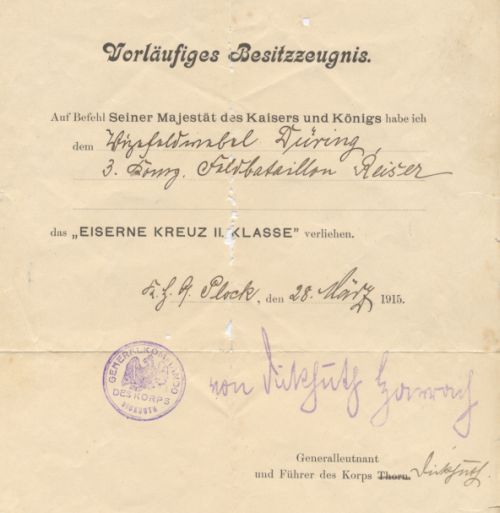 Vorläufiges Besitzzeugnis.
Auf Befehl Seiner Majestät des Kaisers und Königs habe ich
dem Vizefeldwebel Düring,
3. Komp. Feldbataillon Reiser
das „EISERNE KREUZ II. KLASSE” verliehen.
K. H. Q. Plock, den 28. März 1915.
GENERALKOMMANDO
DES KORPS
DICKHUTH
von Dickhuth Harrach
Generalleutnant
und Führer des Korps Thorn. Dickhuth.